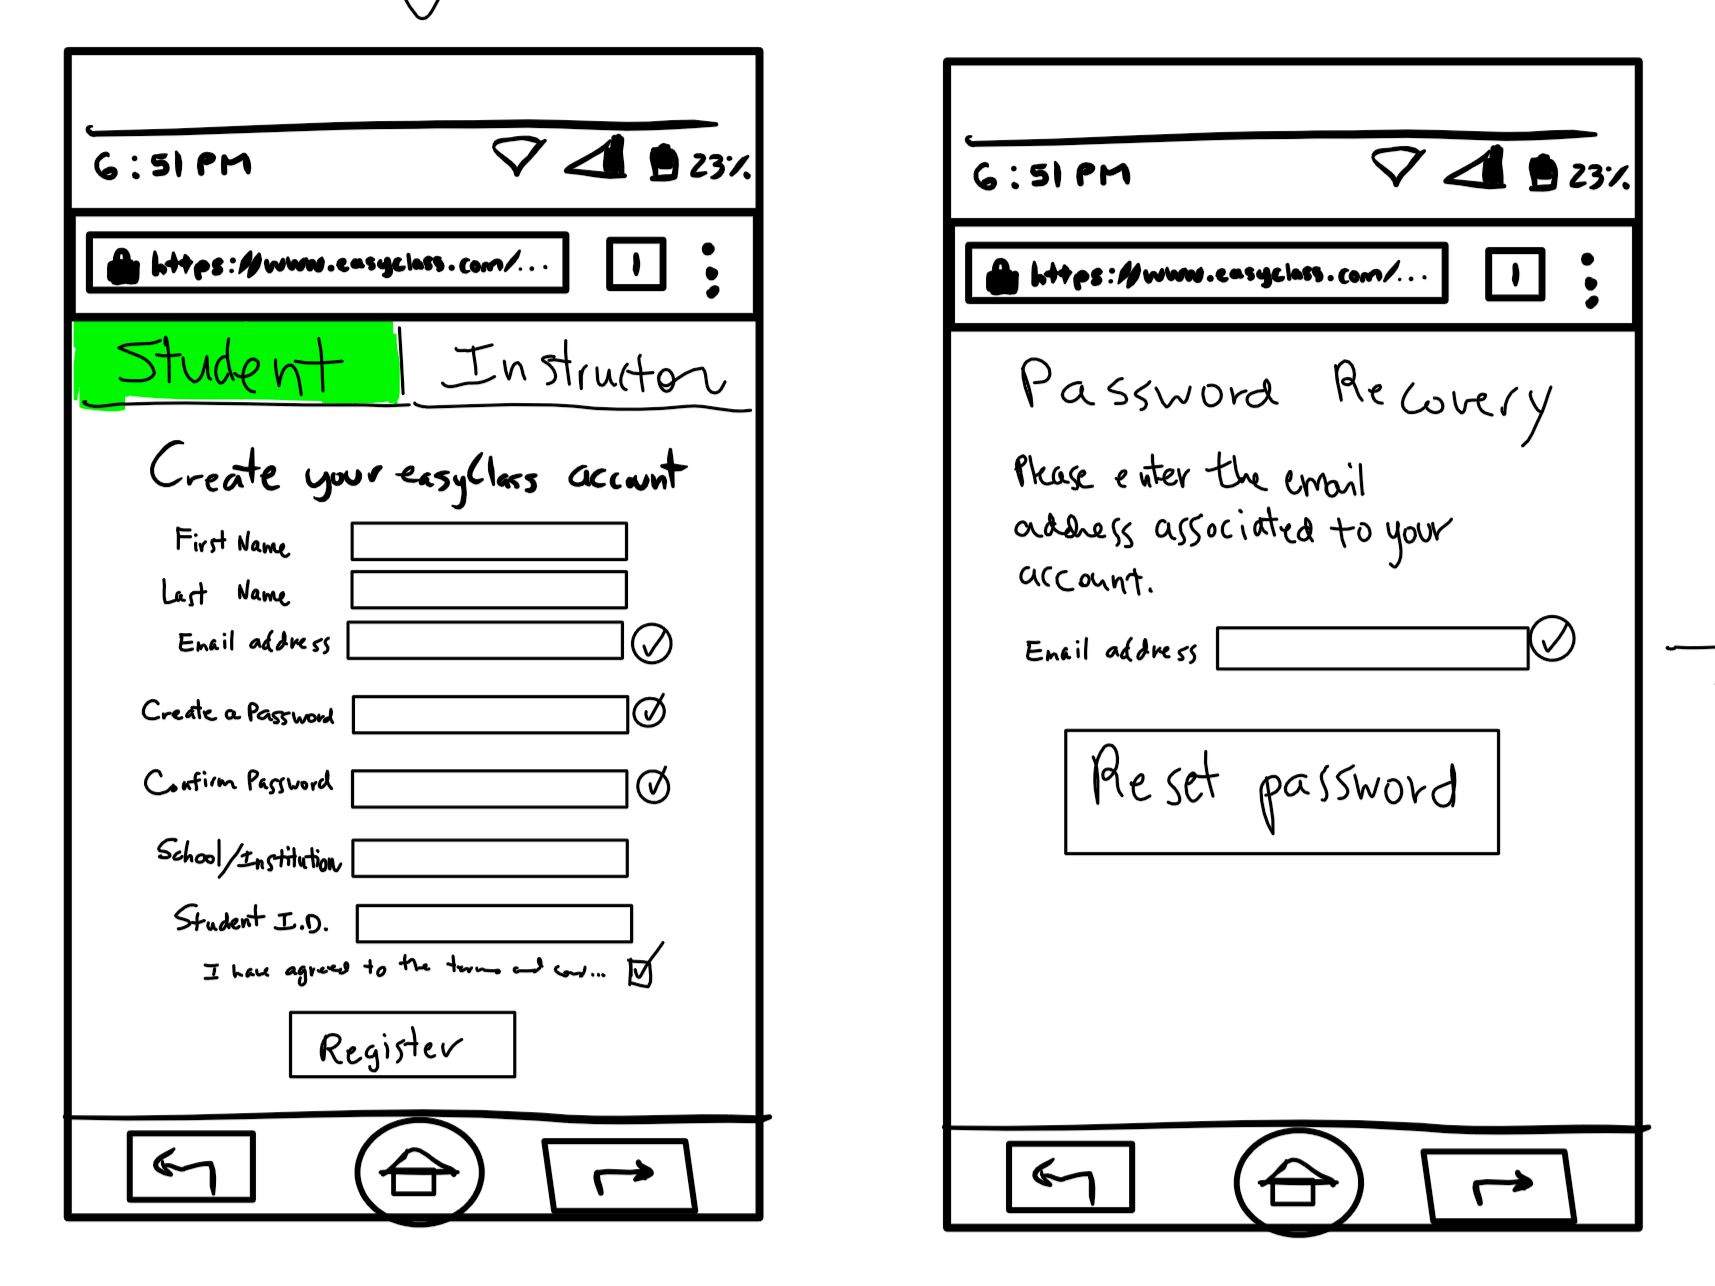 6:51 PM 23%
https://www.easyclass.com/... 1
Student Instructor
Create your easyClass account
First Name
Last Name
Email address
Create a Password
Confirm Password
School/Institution
Student I.D.
I have agreed to the terms and cond...
Register
6:51 PM 23%
https://www.easyclass.com/... 1
Password Recovery
Please enter the email
address associated to your
account.
Email address
Reset password